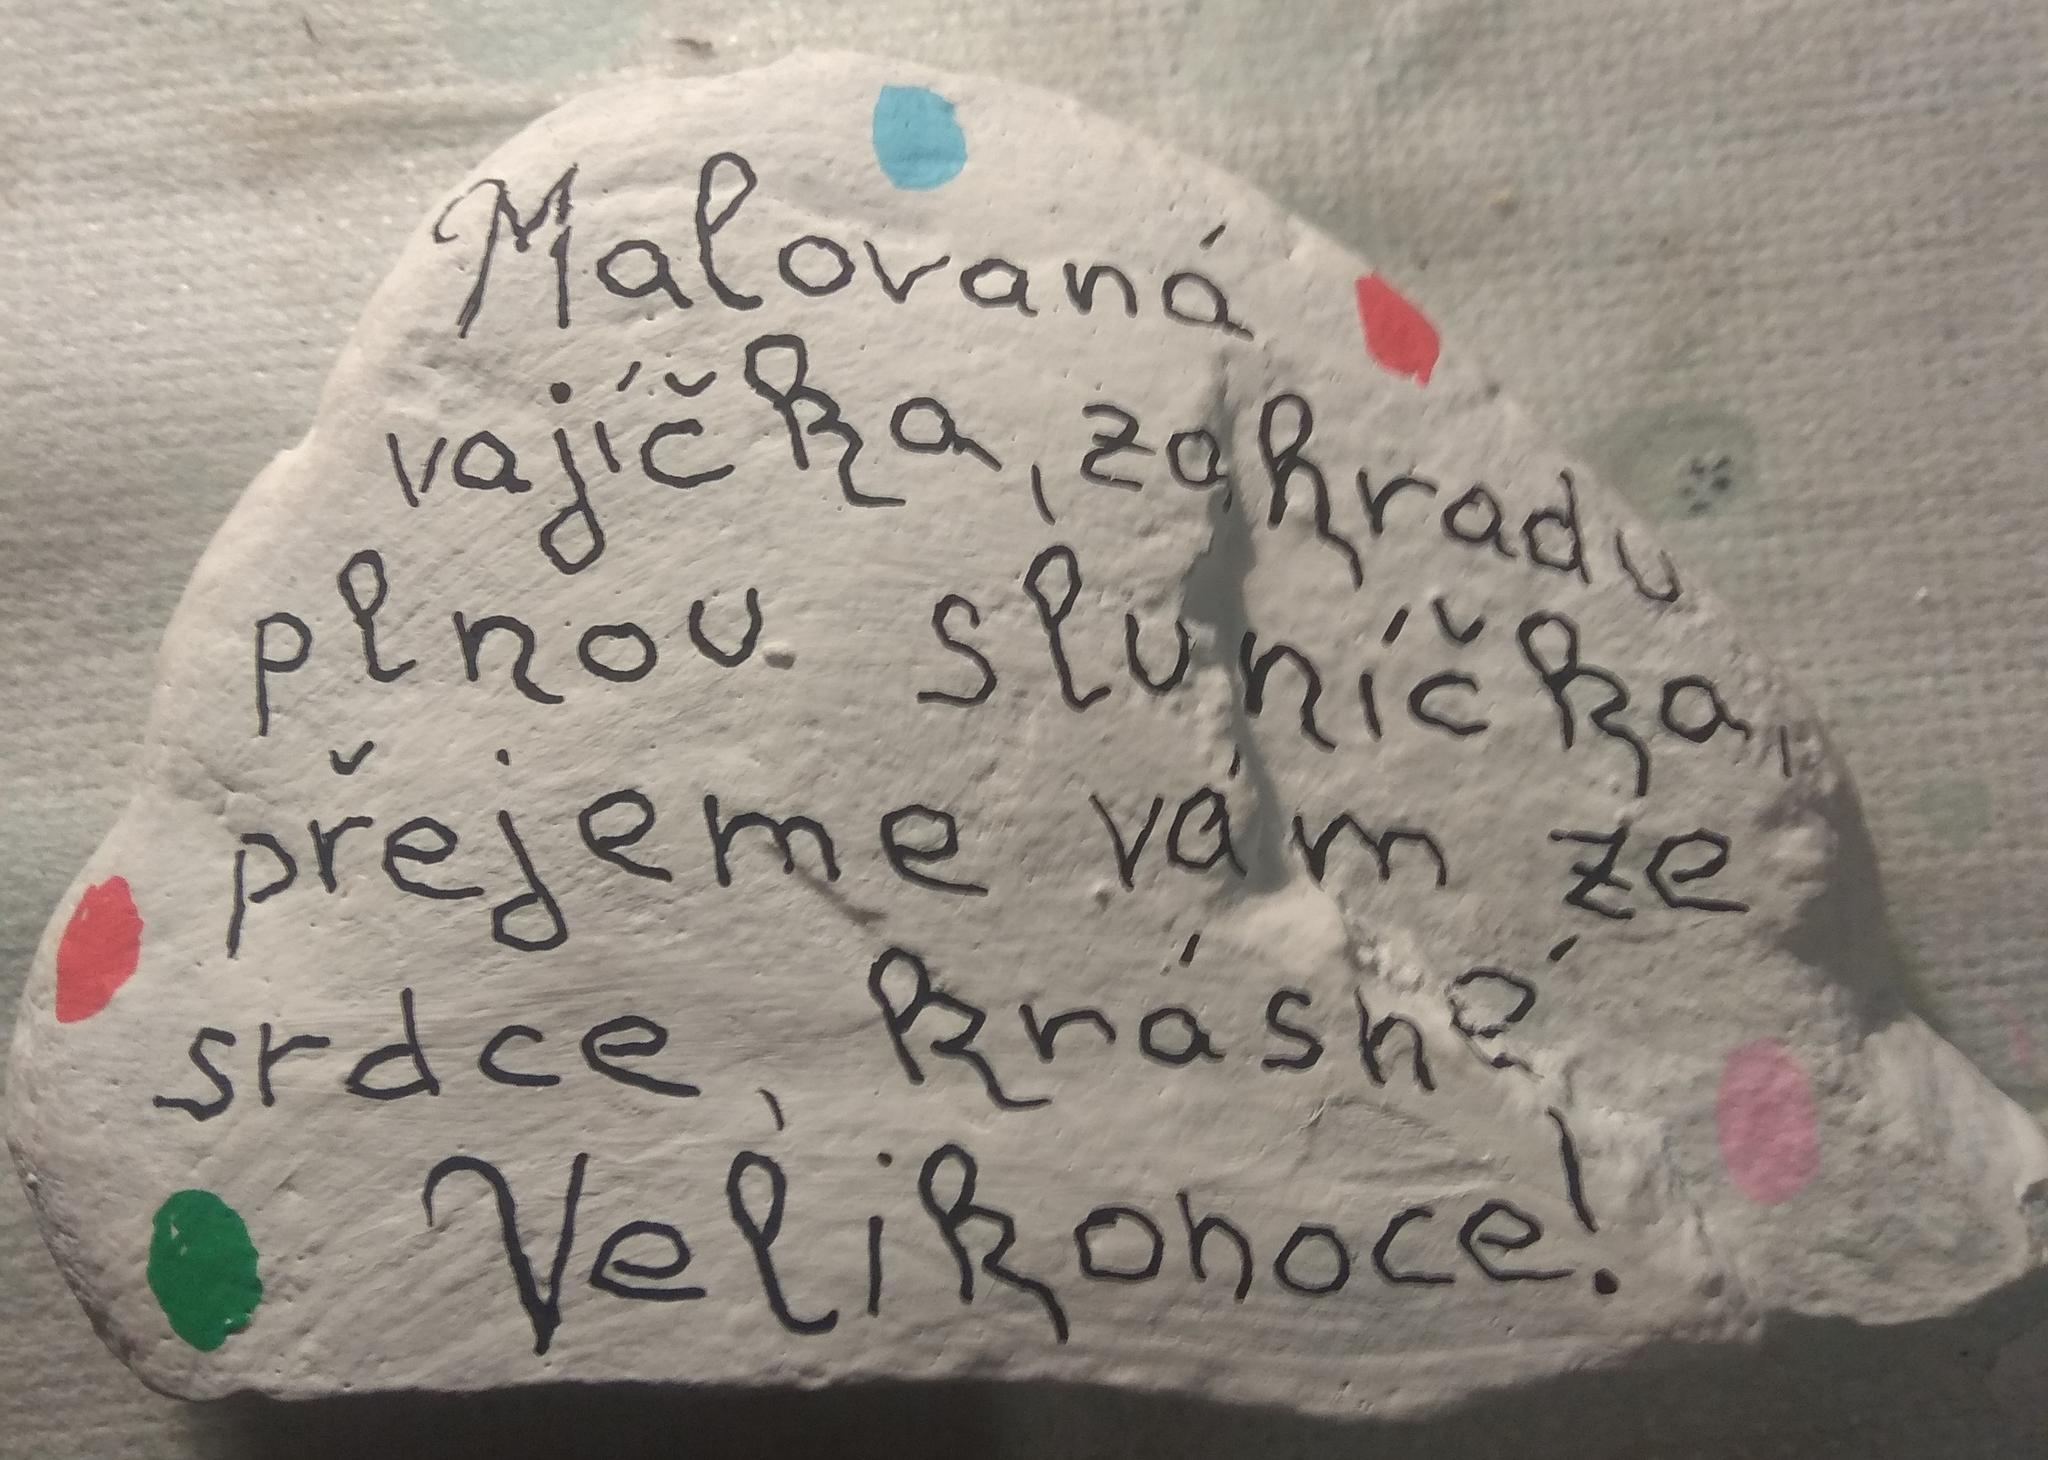 Malovaná
vajíčka, zahradu
plnou sluníčka,
přejeme vám ze
srdce, krásné
Velikonoce!